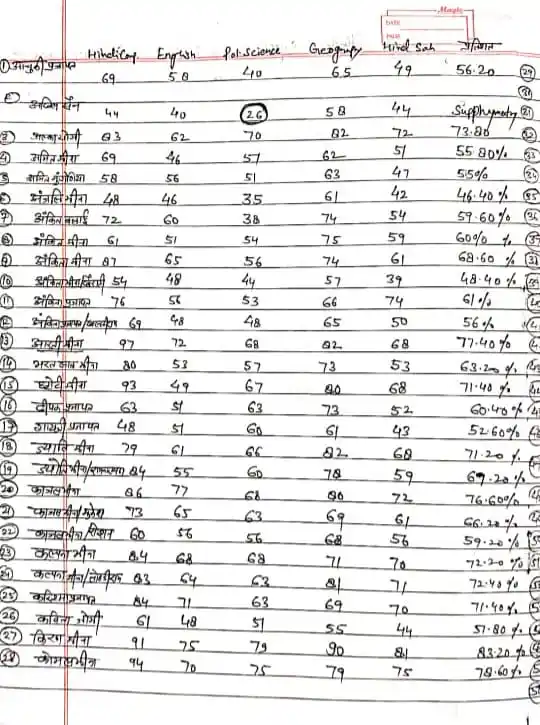 Margin
DATE
PAGE
Hindi Com English Pol. Science Geography Hindi Sah प्रतिशत
① प्रजापत 69 58 40 65 49 56.20 (29)
44 40 (26) 58 44 Supplymetry (31)
③ जोगी 83 62 70 82 72 73.80
④ अमित मीना 69 46 51 62 51 55.80%
⑤ अमित 58 56 51 63 47 55%
⑥ अंजलि मीना 48 46 35 61 42 46.40%
⑦ अंकित 72 60 38 74 54 59.60%
⑧ अंकित मीना 61 51 54 75 59 60%
⑨ अंकिता मीना 87 65 56 74 61 68.60%
⑩ अंकिता मीना 54 48 44 57 39 48.40%
⑪ अंकिता प्रजापत 76 56 53 66 74 61%
⑫ अंकिता प्रजापत 69 48 48 65 50 56%
⑬ आरती मीना 97 72 68 82 68 77.40%
⑭ भरत लाल मीना 80 53 57 73 53 63.20%
⑮ छोटी मीना 93 49 67 80 68 71.40%
⑯ दीपक प्रजापत 63 51 63 73 52 60.40%
⑰ प्रजापत 48 51 60 61 43 52.60%
⑱ ज्योति मीना 79 61 66 82 68 71.20%
⑲ ज्योति मीना 84 55 60 78 59 69.20%
⑳ काजल मीना 86 77 68 80 72 76.60%
㉑ काजल मीना 73 65 63 69 61 66.20%
㉒ काजल मीना 60 56 56 68 56 59.20%
㉓ कल्पना मीना 84 68 68 71 70 72.20%
㉔ कल्पना मीना 83 64 63 81 71 72.40%
㉕ प्रजापत 84 71 63 69 70 71.40%
㉖ कविता जोगी 61 48 51 55 44 51.80%
㉗ किरण मीना 91 75 79 90 81 83.20%
㉘ कोमल मीना 94 70 75 79 75 78.60%